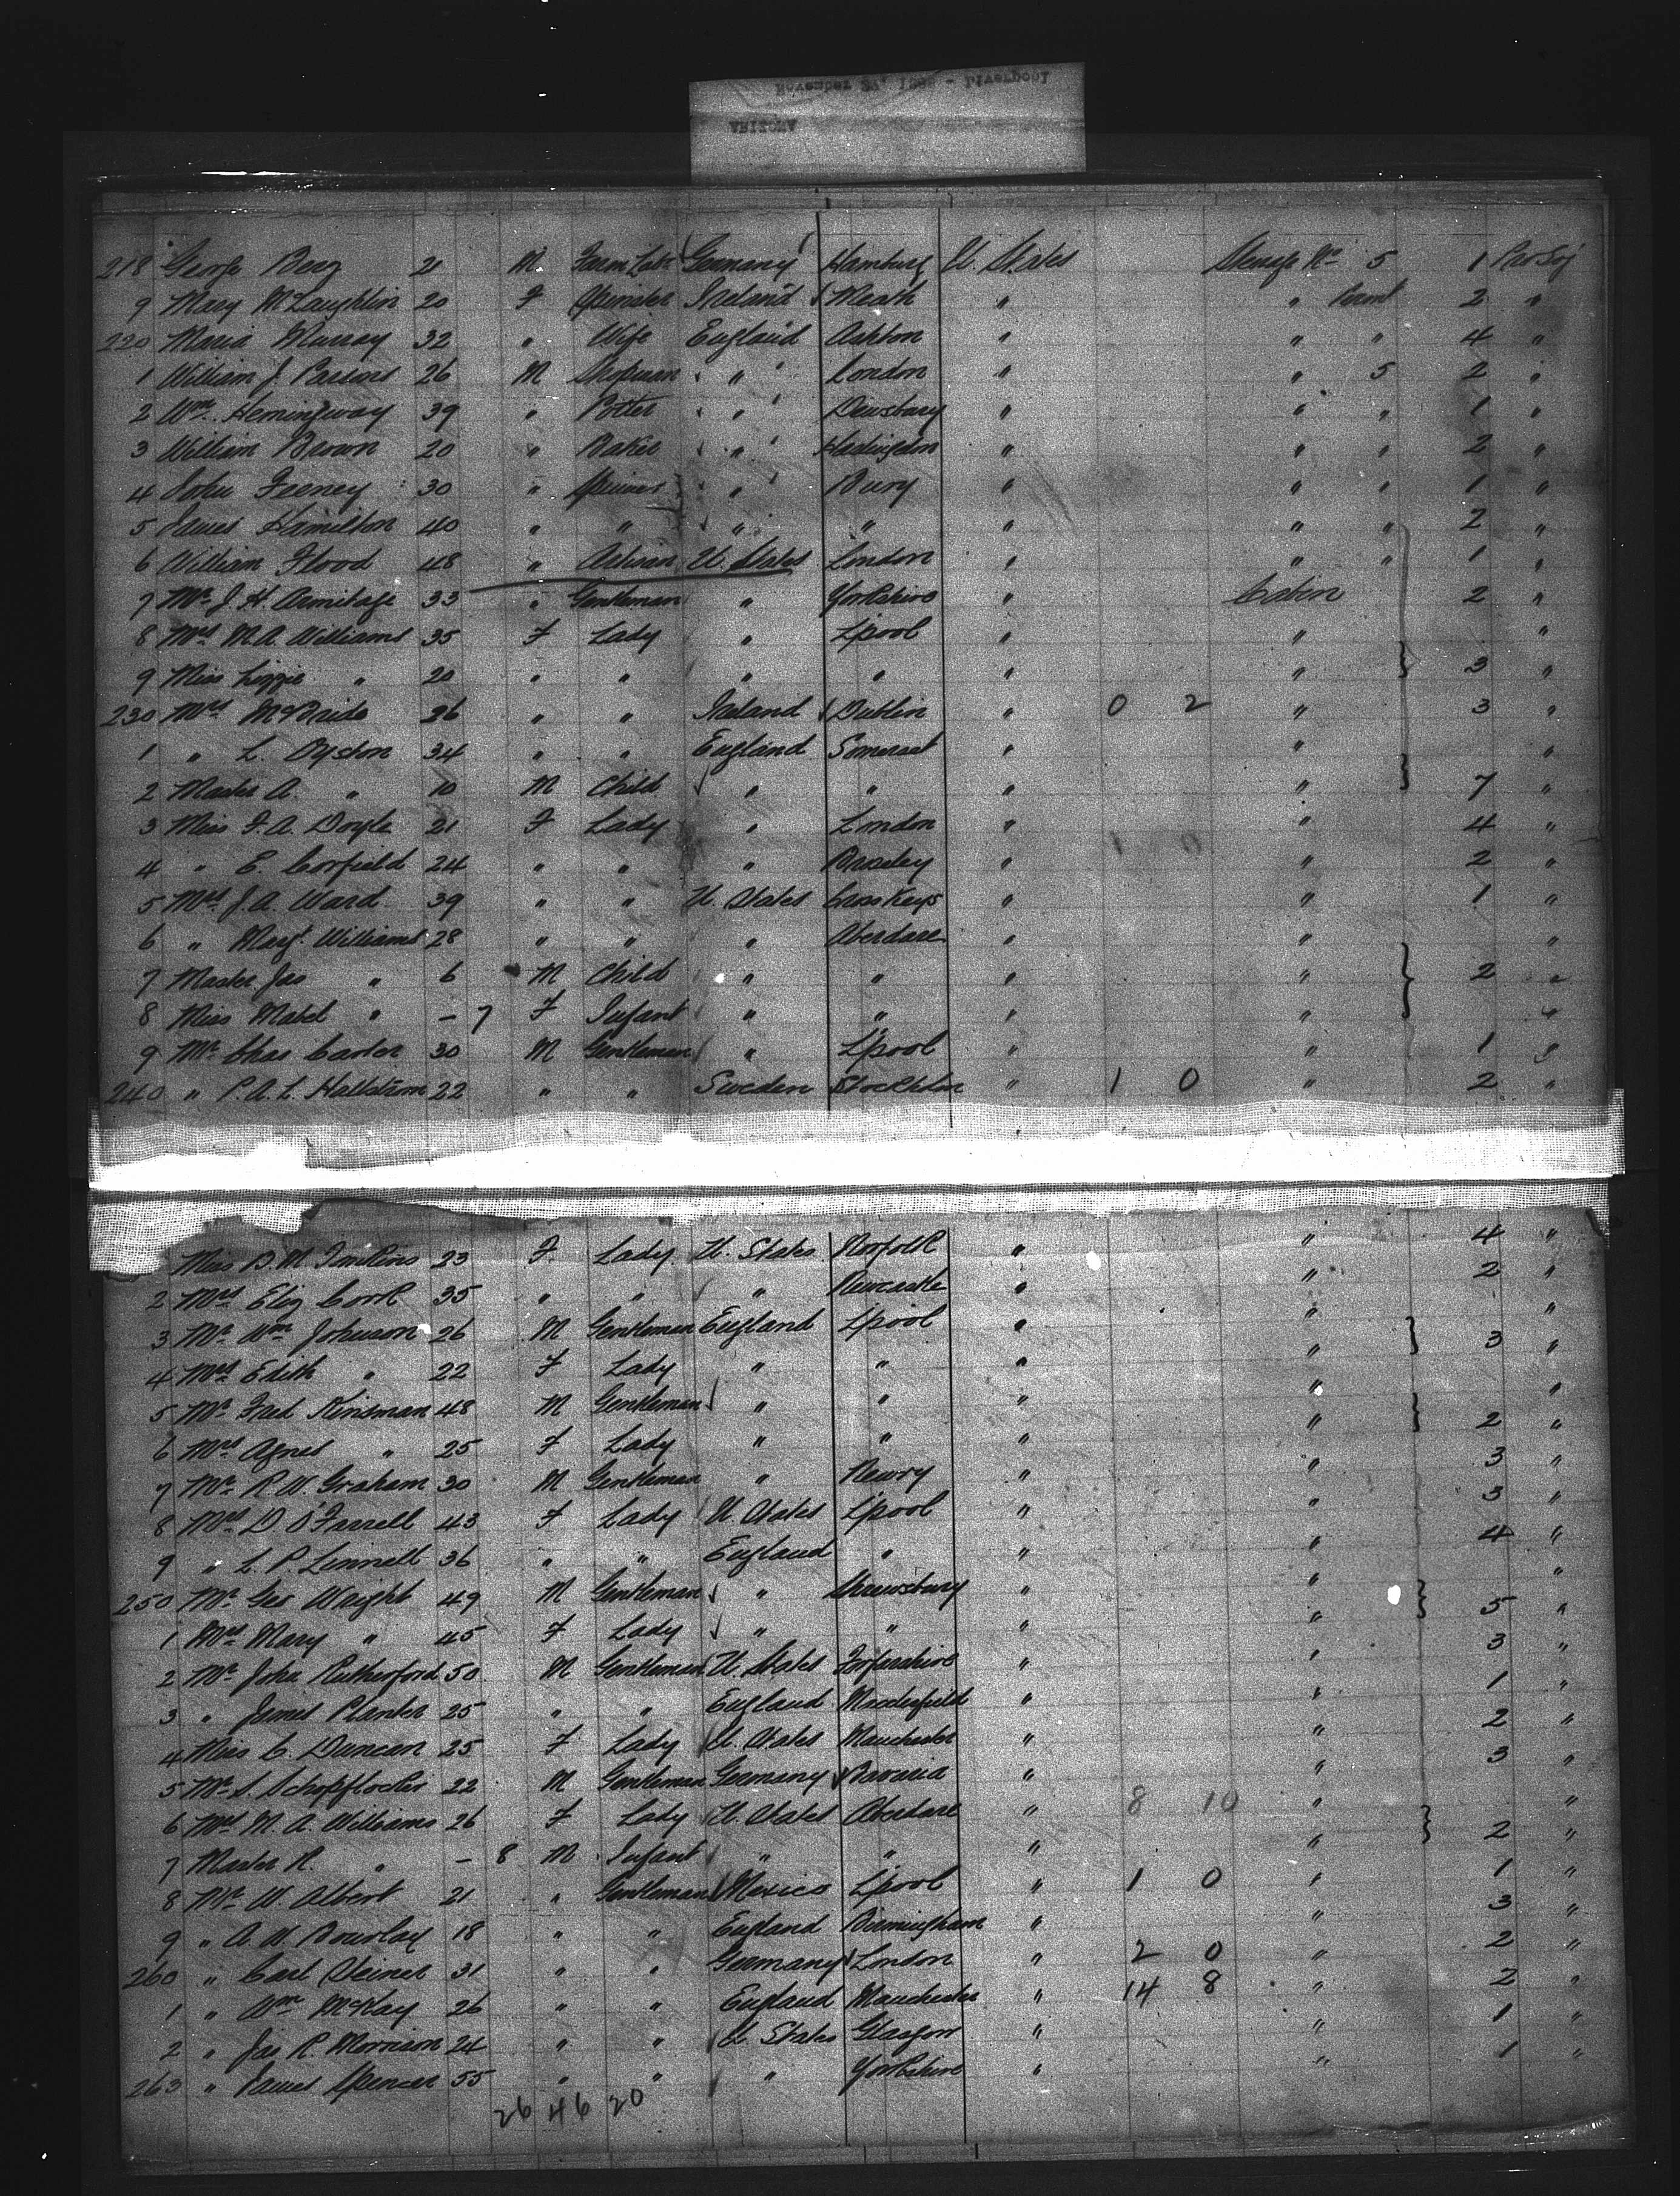 218 George Berg 21 M Farm Labr Germany Hamburg U. States Steerage No 5 1 Par Soj
9 Mary McLaughlin 20 F Spinster Ireland Meath " " 2 "
220 Maria Murray 32 " Wife England Ashton " " " 4 "
1 William J. Parsons 26 M Shopman " London " " 5 2 "
2 Wm. Hemingway 39 " Potter " Dewsbury " " " 1 "
3 William Brown 20 " Baker " " " " 2 "
4 John Feeney 30 " " Bury " " " 1 "
5 James Hamilton 40 " " " " " " " 2 "
6 William Flood 48 " Artisan U. States London " " " 1 "
7 Mr J. H. Armitage 33 " Gentleman " Yorkshire " Cabin 2 "
8 Mrs M. A. Williams 35 F Lady " L'pool " " "
9 Miss Lizzie " 20 " " " " " " 3 "
230 Mrs McBride 36 " " Ireland Dublin " 0 2 " 3 "
1 " L. Oyston 34 " " England Somerset " " "
2 Master A. " 10 M Child " " " " 7 "
3 Miss F. A. Doyle 21 F Lady " London " 1 0 " 4 "
4 " E. Corfield 24 " " " Broseley " " 2 "
5 Mrs J. A. Ward 39 " " U. States Cross Keys " " 1 "
6 " Margt Williams 28 " " " Aberdare " " "
7 Master Jas " 6 M Child " " " " 2 "
8 Miss Mabel " - 7 F Infant " " " " "
9 Mr Chas Carter 30 M Gentleman " L'pool " " 1 "
240 " P. A. L. Hallstrom 22 " " Sweden Stockholm " 1 0 " 2 "
Miss B. M. Tomkins 23 F Lady U. States Norfolk " " 4 "
2 Mrs Eliz Cork 35 " " " Newcastle " " 2 "
3 Mr Wm Johnson 26 M Gentleman England L'pool " " "
4 Mrs Edith " 22 F Lady " " " " 3 "
5 Mr Fred Kinsman 48 M Gentleman " " " " "
6 Mrs Agnes " 25 F Lady " " " " 2 "
7 Mr R. W. Graham 30 M Gentleman " Newry " " 3 "
8 Mrs D O'Farrell 43 F Lady U. States L'pool " " 3 "
9 " L. P. Linnell 36 " " England " " " 4 "
250 Mr Geo Wright 49 M Gentleman " Shrewsbury " " "
1 Mrs Mary " 45 F Lady " " " " 5 "
2 Mr John Rutherford 50 M Gentleman U. States Forfarshire " " 3 "
3 " James Planter 25 " " England Macclesfield " " 1 "
4 Miss C. Duncan 25 F Lady U. States Manchester " " 2 "
5 Mr S. Schopflocher 22 M Gentleman Germany Bavaria " " 3 "
6 Mrs M. A. Williams 26 F Lady U. States Aberdare " 8 10 " "
7 Master R. " - 8 M Infant " " " " 2 "
8 Mr W. Albert 21 " Gentleman Mexico L'pool " 1 0 " 1 "
9 " A. W. Bourlay 18 " " England Birmingham " " 3 "
260 " Carl Steiner 31 " " Germany London " 2 0 " 2 "
1 " Wm McKay 26 " " England Manchester " 14 8 " 2 "
2 " Jas R. Morrison 24 " " U. States Glasgow " " 1 "
263 " James Spencer 55 " " " Yorkshire " " 1 "
26 46 20